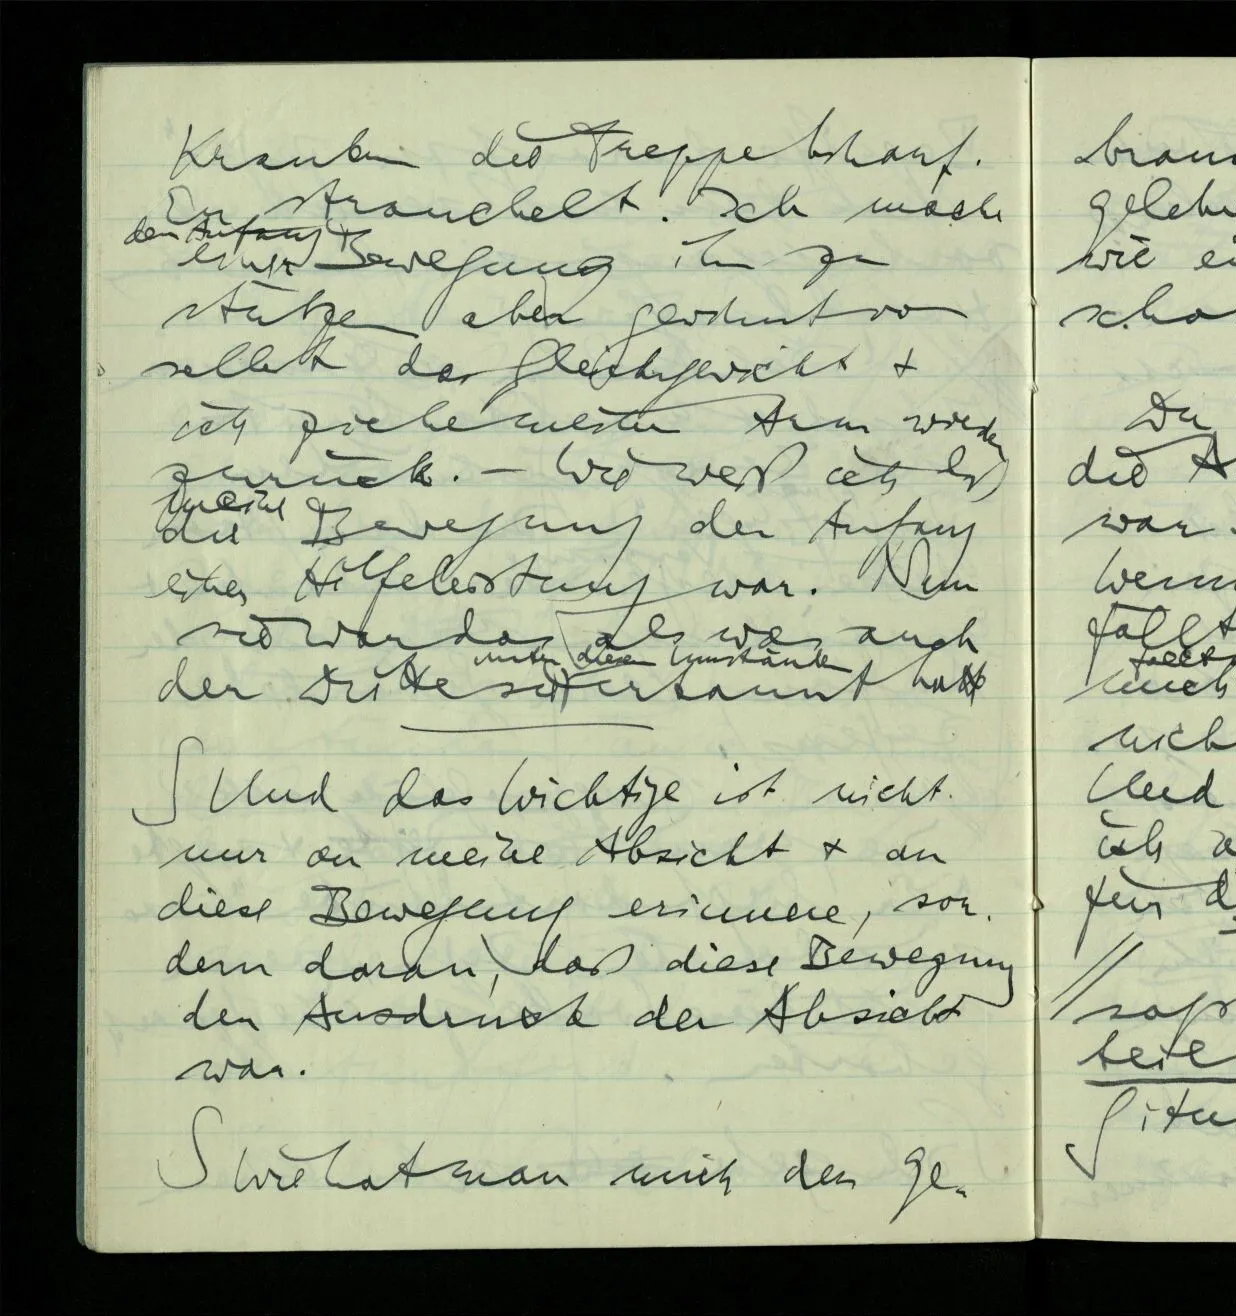 Kranken die Treppe herauf.
Er strauchelt. Ich mache
den Anfang
einer Bewegung ihn zu
stützen aber gewinnt von
selbst das Gleichgewicht +
ich ziehe meinen Arm wieder
zurück. – Wie weiß ich daß
meine
die Bewegung der Anfang
einer Hilfeleistung war. Nun
sie war das als was auch
unter diesen Umständen
der Dritte sie erkannt hat
∫ Und das Wichtige ist nicht
nur an meine Absicht + an
diese Bewegung erinnere, son-
dern daran, daß diese Bewegung
der Ausdruck der Absicht
war.
∫ Wie hat man mich den Ge-
wie
Du
die
war.
Wenn
fällt
mich
Und
ich
für